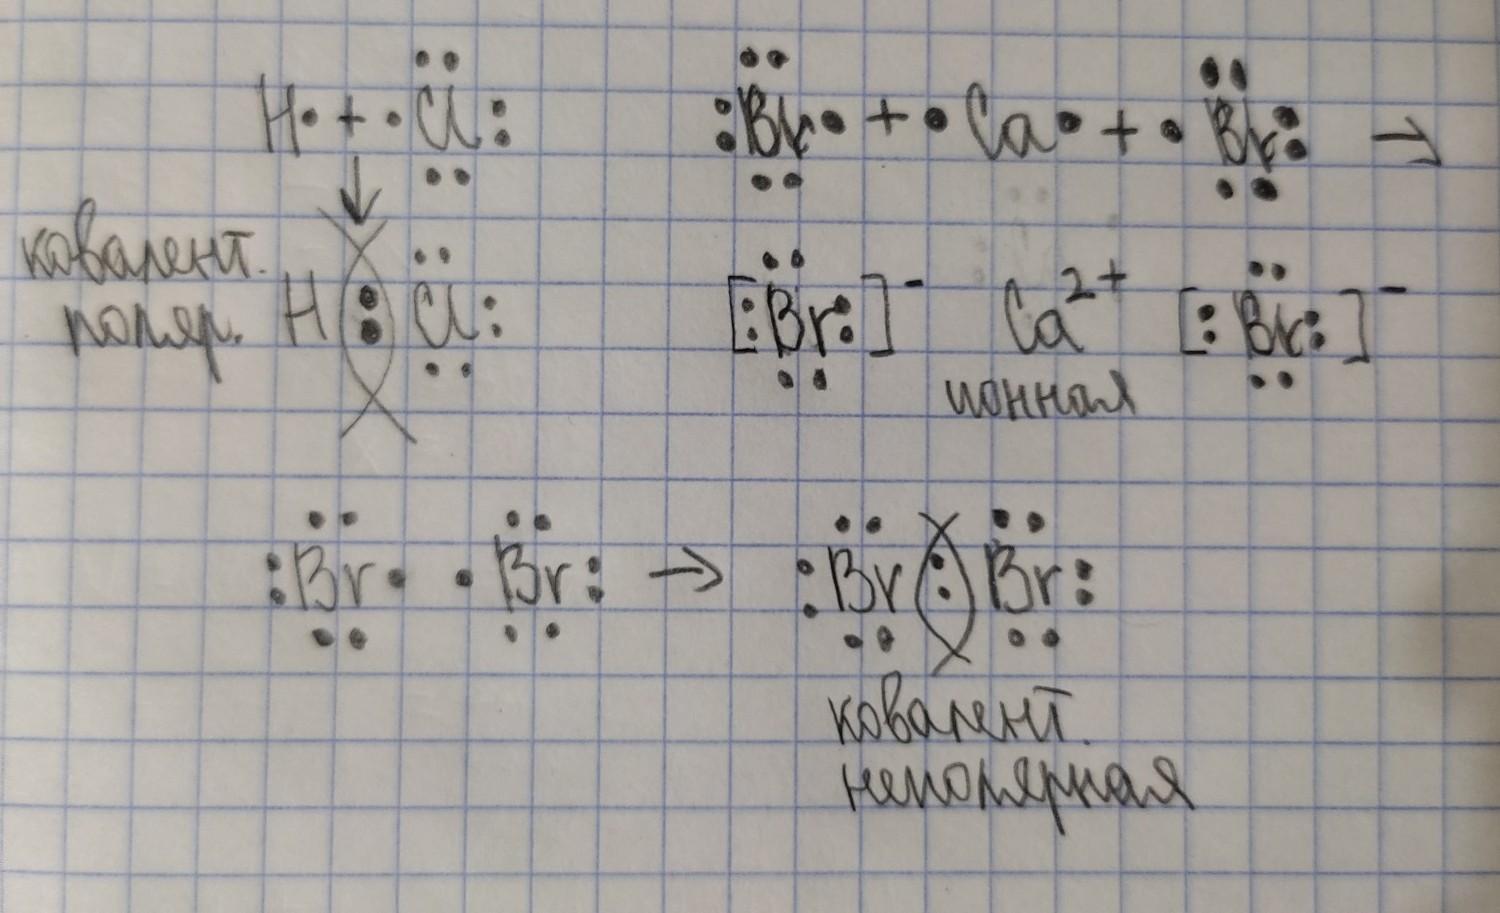 H· + ·Cl:
:Br· + ·Ca· + ·Br: →
↓
ковалент.
поляр.
H : Cl:
[:Br:]⁻ Ca²⁺ [:Br:]⁻
ионная
:Br· ·Br: → :Br : Br:
ковалент.
неполярная